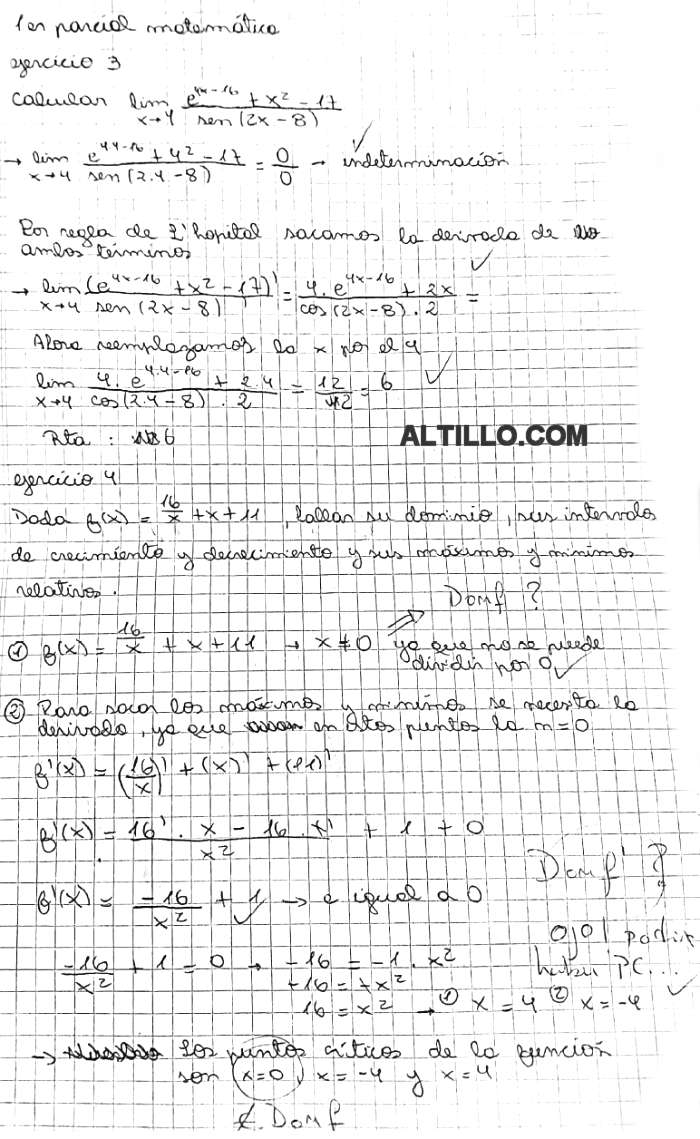 1er parcial matemática
ejercicio 3
Calcular lim x→4 (e^(4x-16) + x² - 17) / sen(2x - 8)
→ lim x→4 (e^(4.4-16) + 4² - 17) / sen(2.4 - 8) = 0/0 → indeterminación ✓
Por regla de L'hopital sacamos la derivada de
ambos términos
→ lim x→4 (e^(4x-16) + x² - 17)' / sen(2x - 8)' = (4. e^(4x-16) + 2x) / (cos(2x-8) . 2) = ✓
Ahora reemplazamos la x por el 4
lim x→4 (4. e^(4.4-16) + 2.4) / (cos(2.4 - 8) . 2) = 12/2 = 6 ✓
Rta : 6
ALTILLO.COM
ejercicio 4
Dada f(x) = 16/x + x + 11 , hallar su dominio, sus intervalos
de crecimiento y decrecimiento y sus máximos y mínimos
relativos.
Domf ?
① f(x) = 16/x + x + 11 → x ≠ 0 ya que no se puede
dividir por 0 ✓
② Para sacar los máximos y mínimos se necesita la
derivada, ya que en estos puntos la m = 0
f'(x) = (16/x)' + (x)' + (11)'
f'(x) = (16' . x - 16 . x') / x² + 1 + 0
Domf' ?
f'(x) = -16/x² + 1 ✓ → e igual a 0
ojo!
-16/x² + 1 = 0 → -16 = -1 . x²
haber PC...
+16 = +x²
16 = x² → ① x = 4 ② x = -4 ✓
→ Los puntos críticos de la función
son x=0, x = -4 y x = 4
∉ Domf